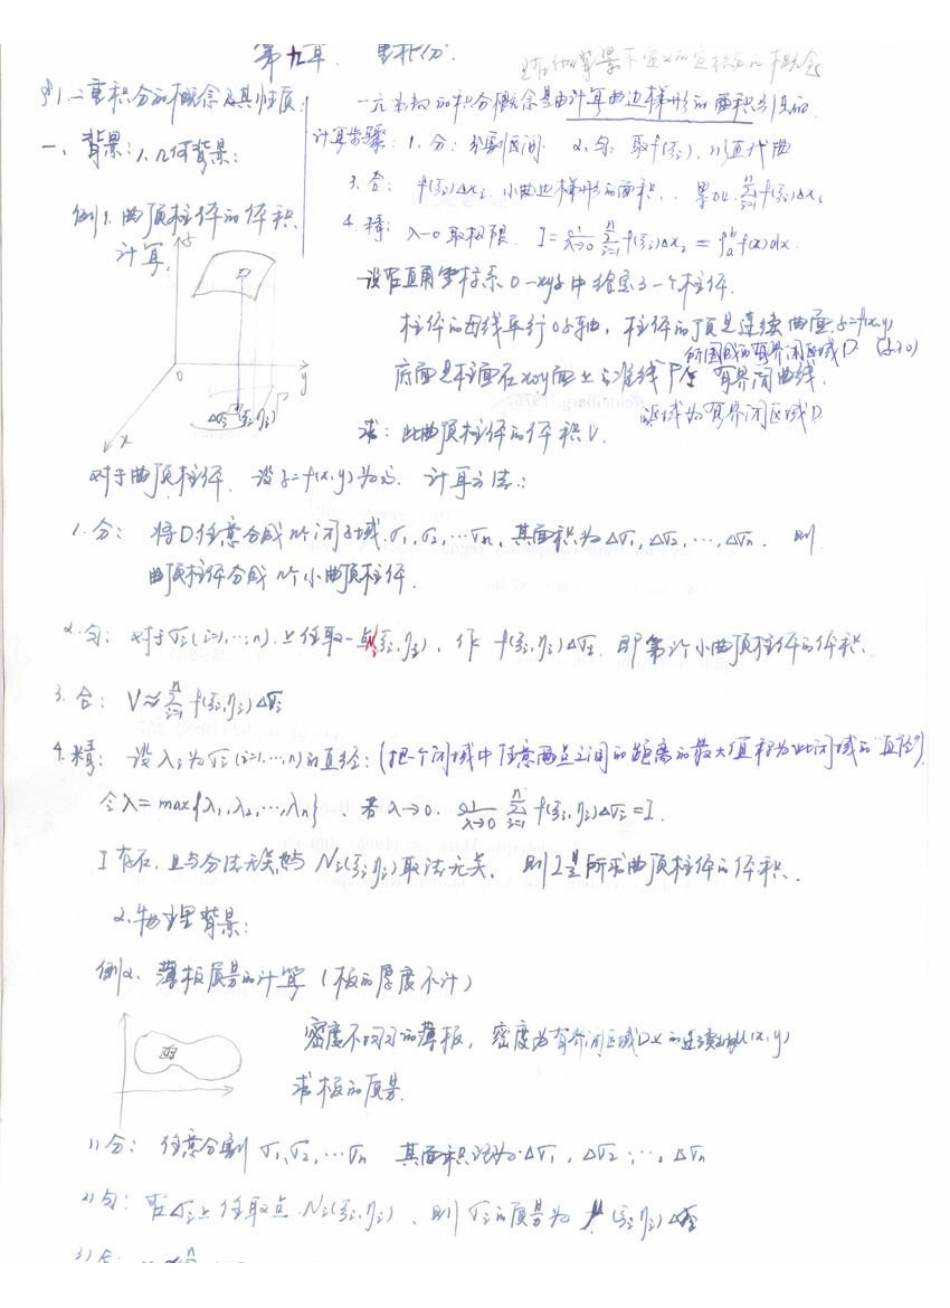 第九章 重积分
§1. 二重积分的概念及其性质
一元函数的积分概念是由计算曲边梯形的面积引出的
一、背景: 1. 几何背景:
计算步骤: 1. 分: 分割区间 2. 匀: 取f(ξi), 以直代曲
3. 合: f(ξi)Δxi 小曲边梯形的面积, 累加 Σ_{i=1}^{n} f(ξi)Δxi
例1. 曲顶柱体的体积
计算.
4. 精: λ→0 取极限 I = lim_{λ→0} Σ_{i=1}^{n} f(ξi)Δxi = ∫_a^b f(x)dx.
设在直角坐标系 O-xyz 中给定了一个柱体.
柱体的母线平行 oz 轴, 柱体的顶是连续曲面 z=f(x,y)
所围成的有界闭区域D (z≥0)
底面是柱面在xoy面上的准线Γ 有界闭曲线.
区域为有界闭区域D
z
o
y
x
Γ
Δσi (ξi,ηi)
求: 此曲顶柱体的体积V.
对于曲顶柱体 设z=f(x,y)为顶. 计算方法:
1. 分: 将D任意分成n个闭子域 σ1, σ2, …σn, 其面积为Δσ1, Δσ2, …, Δσn. 则
曲顶柱体分成n个小曲顶柱体.
2. 匀: 对于σi(i=1,…,n)上任取一点Ni(ξi,ηi), 作 f(ξi,ηi)Δσi 即第i个小曲顶柱体的体积.
3. 合: V≈Σ_{i=1}^{n} f(ξi,ηi)Δσi
4. 精: 设λi为σi(i=1,…,n)的直径: (把一个闭域中任意两点之间的距离的最大值称为此闭域的"直径")
令λ=max{λ1,λ2,…,λn}, 若λ→0. lim_{λ→0} Σ_{i=1}^{n} f(ξi,ηi)Δσi=I.
I存在, 且与分法无关, 与Ni(ξi,ηi)取法无关, 则I是所求曲顶柱体的体积.
2. 物理背景:
例2. 薄板质量的计算 (板的厚度不计)
密度不均匀的薄板, 密度为有界闭区域D上的连续函数μ(x,y)
求板的质量.
1) 分: 任意分割 σ1, σ2, …σn 其面积记为Δσ1, Δσ2, …, Δσn
2) 匀: 在σi上任取点 Ni(ξi,ηi), 则σi的质量为μ(ξi,ηi)Δσi
3) 合: